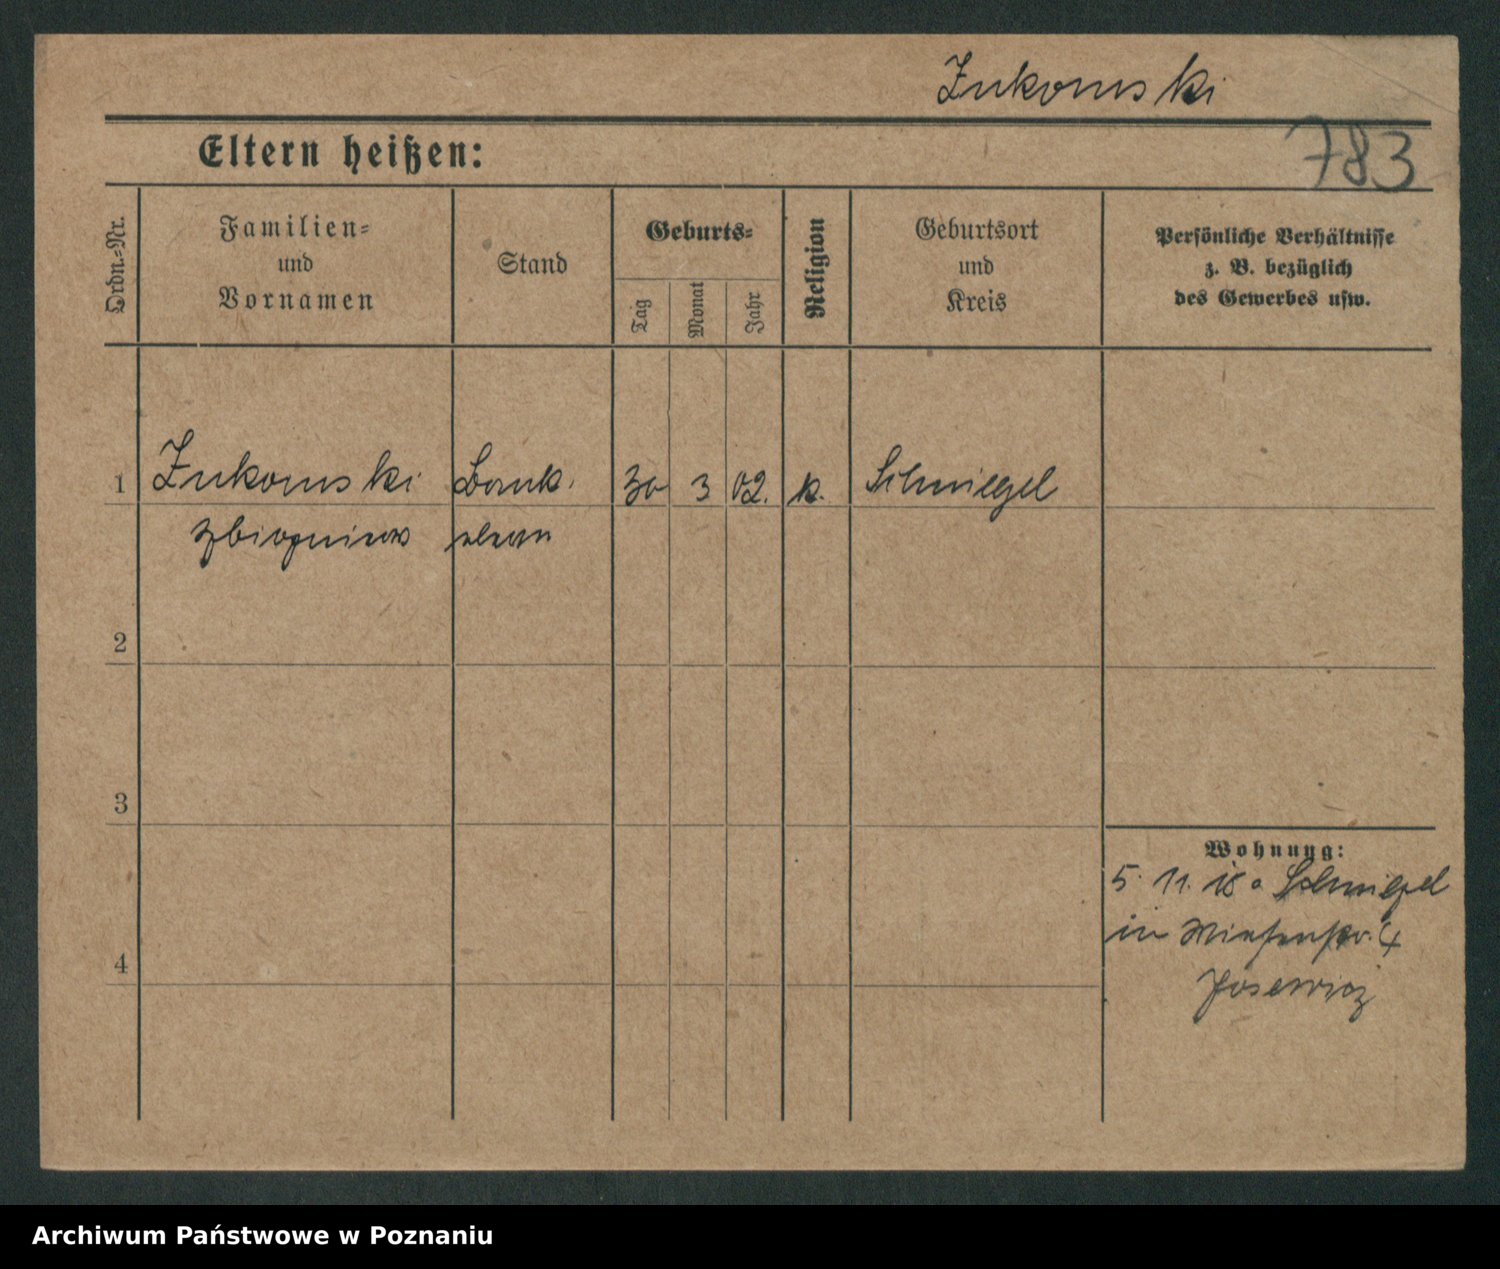 Zukowski
783
Eltern heißen:
Ordn.-Nr.
Familien- und Vornamen
Stand
Geburts-
Tag
Monat
Jahr
Religion
Geburtsort und Kreis
Persönliche Verhältnisse
z. B. bezüglich
des Gewerbes usw.
1 Zukowski Bank. 30 3 02. k. Schmiegel
Zbigniew
2
3
Wohnung:
5. 11. 18 a Schmiegel
in Wiesenstr. 4
4
Archiwum Państwowe w Poznaniu